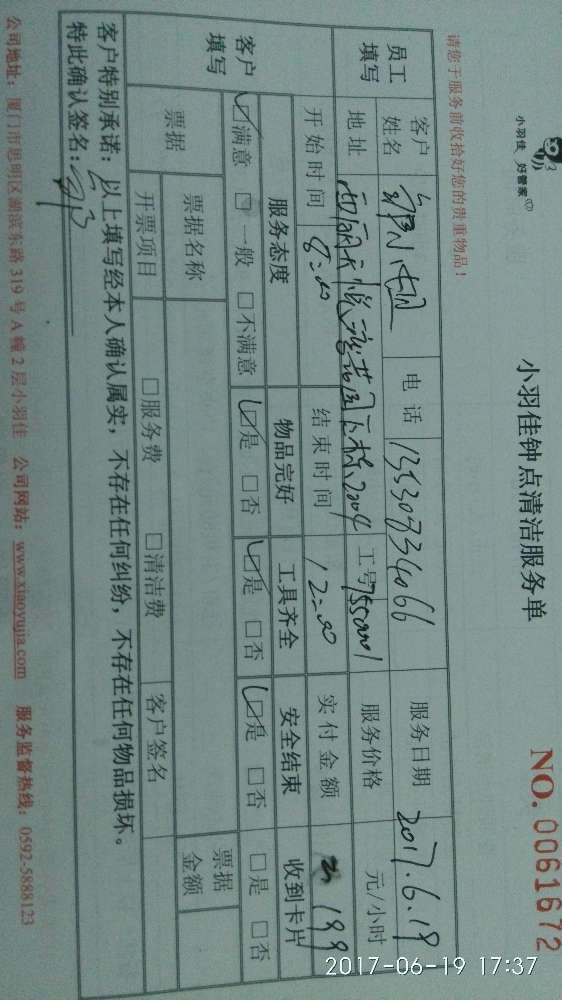 小羽佳 好管家
小羽佳钟点清洁服务单
NO. 0061672
请您于服务前收拾好您的贵重物品！
员工填写 客户姓名 电话 13530734066 服务日期 2017.6.19
地址 工号 服务价格 元/小时
开始时间 8:00 结束时间 12:00 实付金额 199
客户填写 服务态度 物品完好 工具齐全 安全结束 收到卡片
☑满意 □一般 □不满意 ☑是 □否 ☑是 □否 ☑是 □否 □是 □否
票据 票据名称 票据金额
开票项目 □服务费 □清洁费 客户签名
客户特别承诺：以上填写经本人确认属实，不存在任何纠纷，不存在任何物品损坏。
特此确认签名：
公司地址：厦门市思明区湖滨东路319号A幢2层小羽佳 公司网站：www.xiaoyujia.com 服务监督热线：0592-5888123
2017-06-19 17:37